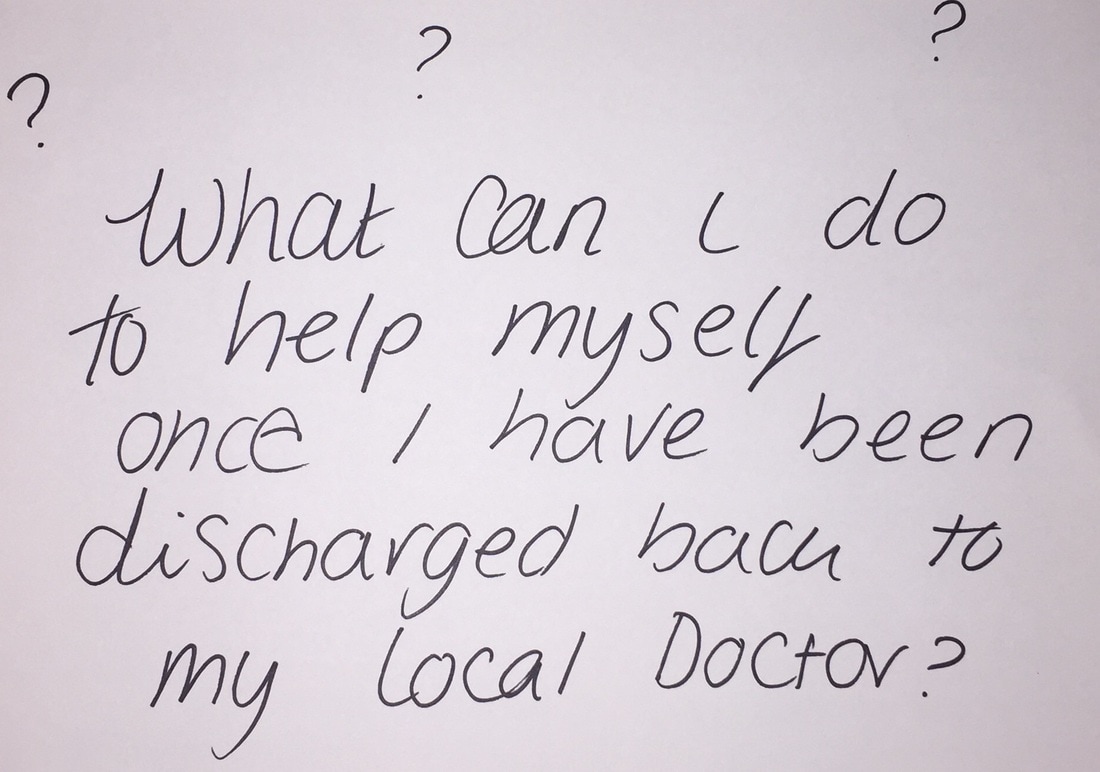 ? ? ?
What can I do
to help myself
once I have been
discharged back to
my local Doctor?